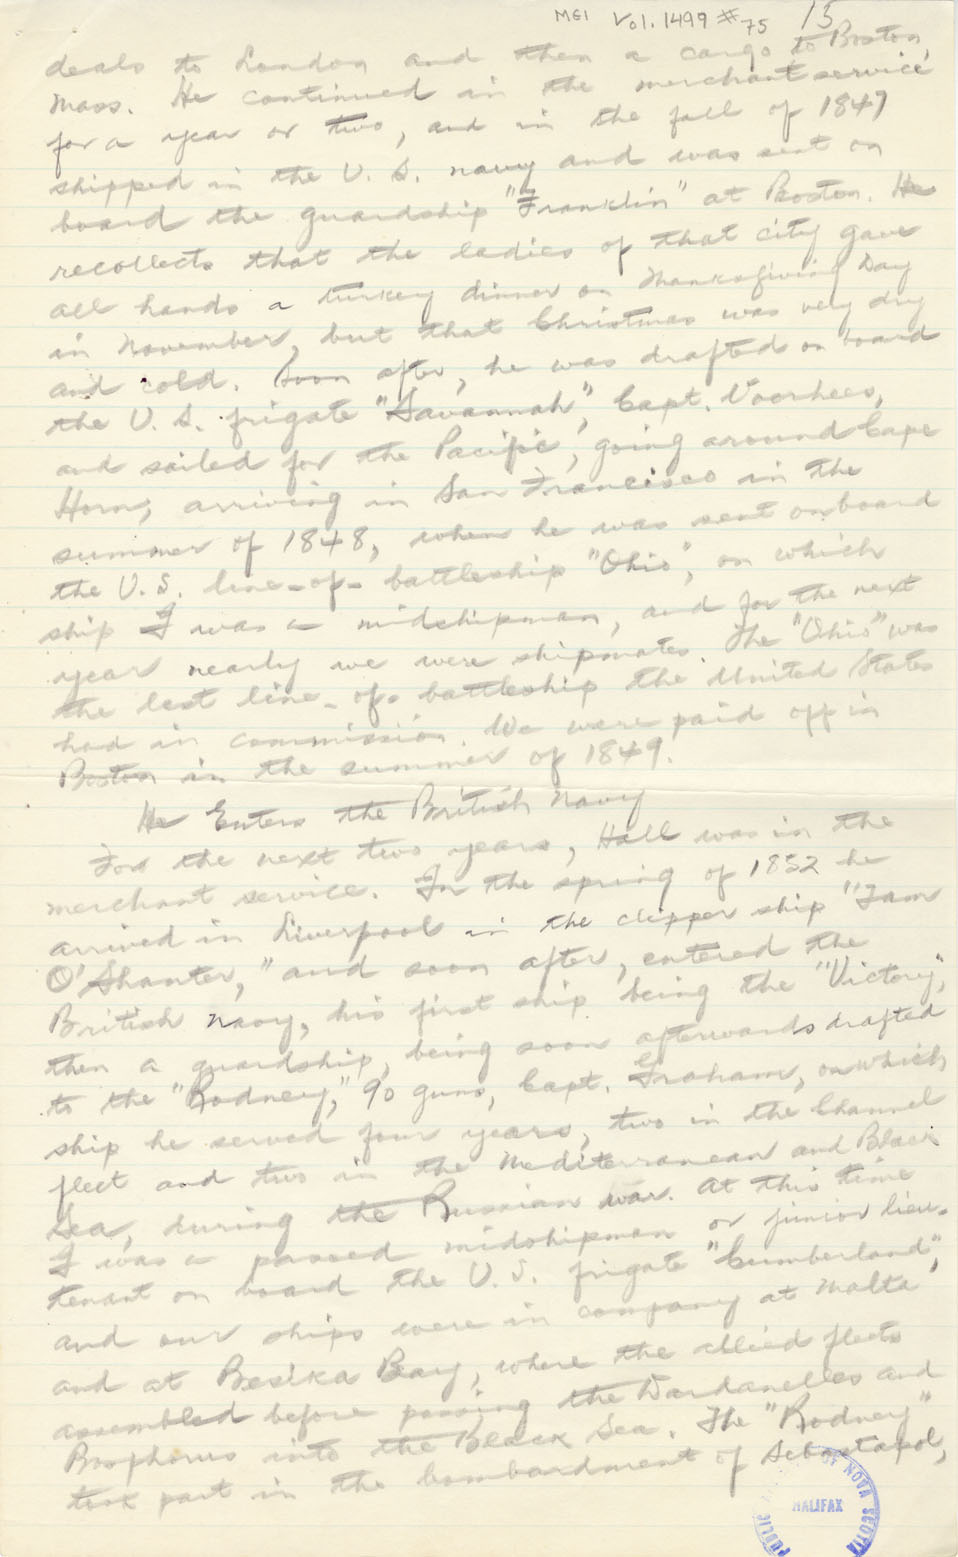 MG1 Vol. 1499 #75 15
deals to London and then a cargo to Boston,
Mass. He continued in the merchant service
for a year or two, and in the fall of 1847
shipped in the U.S. navy and was sent on
board the guardship "Franklin" at Boston. He
recollects that the ladies of that city gave
all hands a turkey dinner on Thanksgiving Day
in November, but that Christmas was very dry
and cold. Soon after, he was drafted on board
the U.S. frigate "Savannah", Capt. Voorhees,
and sailed for the Pacific, going around Cape
Horn, arriving in San Francisco in the
summer of 1848, when he was sent onboard
the U.S. line-of-battleship "Ohio", on which
ship I was a midshipman, and for the next
year nearly we were shipmates. The "Ohio" was
the last line-of-battleship the United States
had in commission. We were paid off in
Boston in the summer of 1849.
He Enters the British Navy
For the next two years, Hall was in the
merchant service. In the spring of 1852 he
arrived in Liverpool in the clipper ship "Tam
O'Shanter," and soon after, entered the
British navy, his first ship being the "Victory",
then a guardship, being soon afterwards drafted
to the "Rodney," 90 guns, Capt. Graham, on which
ship he served four years, two in the Channel
fleet and two in the Mediterranean and Black
Sea, during the Russian war. At this time
I was a passed midshipman or junior lieu-
tenant on board the U.S. frigate "Cumberland",
and our ships were in company at Malta
and at Besika Bay, where the allied fleets
assembled before passing the Dardanelles and
Bosphorus into the Black Sea. The "Rodney"
took part in the bombardment of Sebastapol,
PUBLIC OF NOVA SCOTIA
HALIFAX